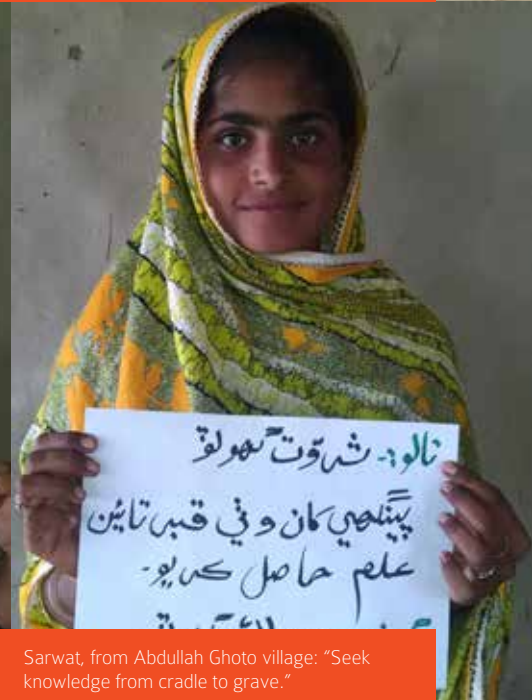 نالو:- ثروت گهوٽو
پينگهي کان وٺي قبر تائين
علم حاصل ڪريو-
Sarwat, from Abdullah Ghoto village: “Seek
knowledge from cradle to grave.”